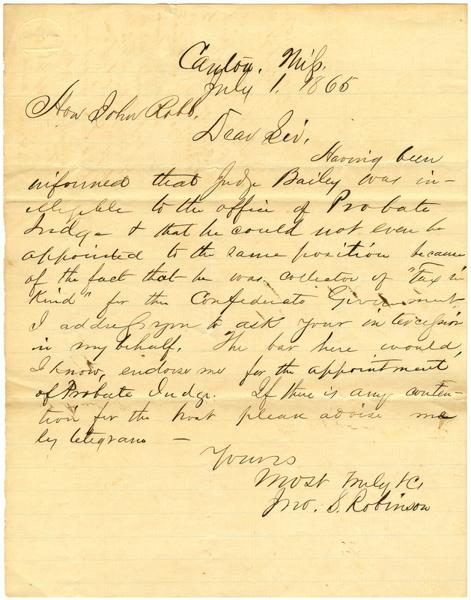 Canton, Miss.
July 1, 1865
Hon John Robb,
Dear Sir,
Having been
informed that Judge Bailey was in-
eligible to the office of Probate
Judge & that he could not even be
appointed to the same position because
of the fact that he was collector of "Tax in
Kind" for the Confederate Government,
I address you to ask your intercession
in my behalf. The bar here would,
I know, endorse me for the appointment
of Probate Judge. If there is any conten-
tion for the post please advise me
by telegram —
Yours
Most truly &c
Jno. S. Robinson